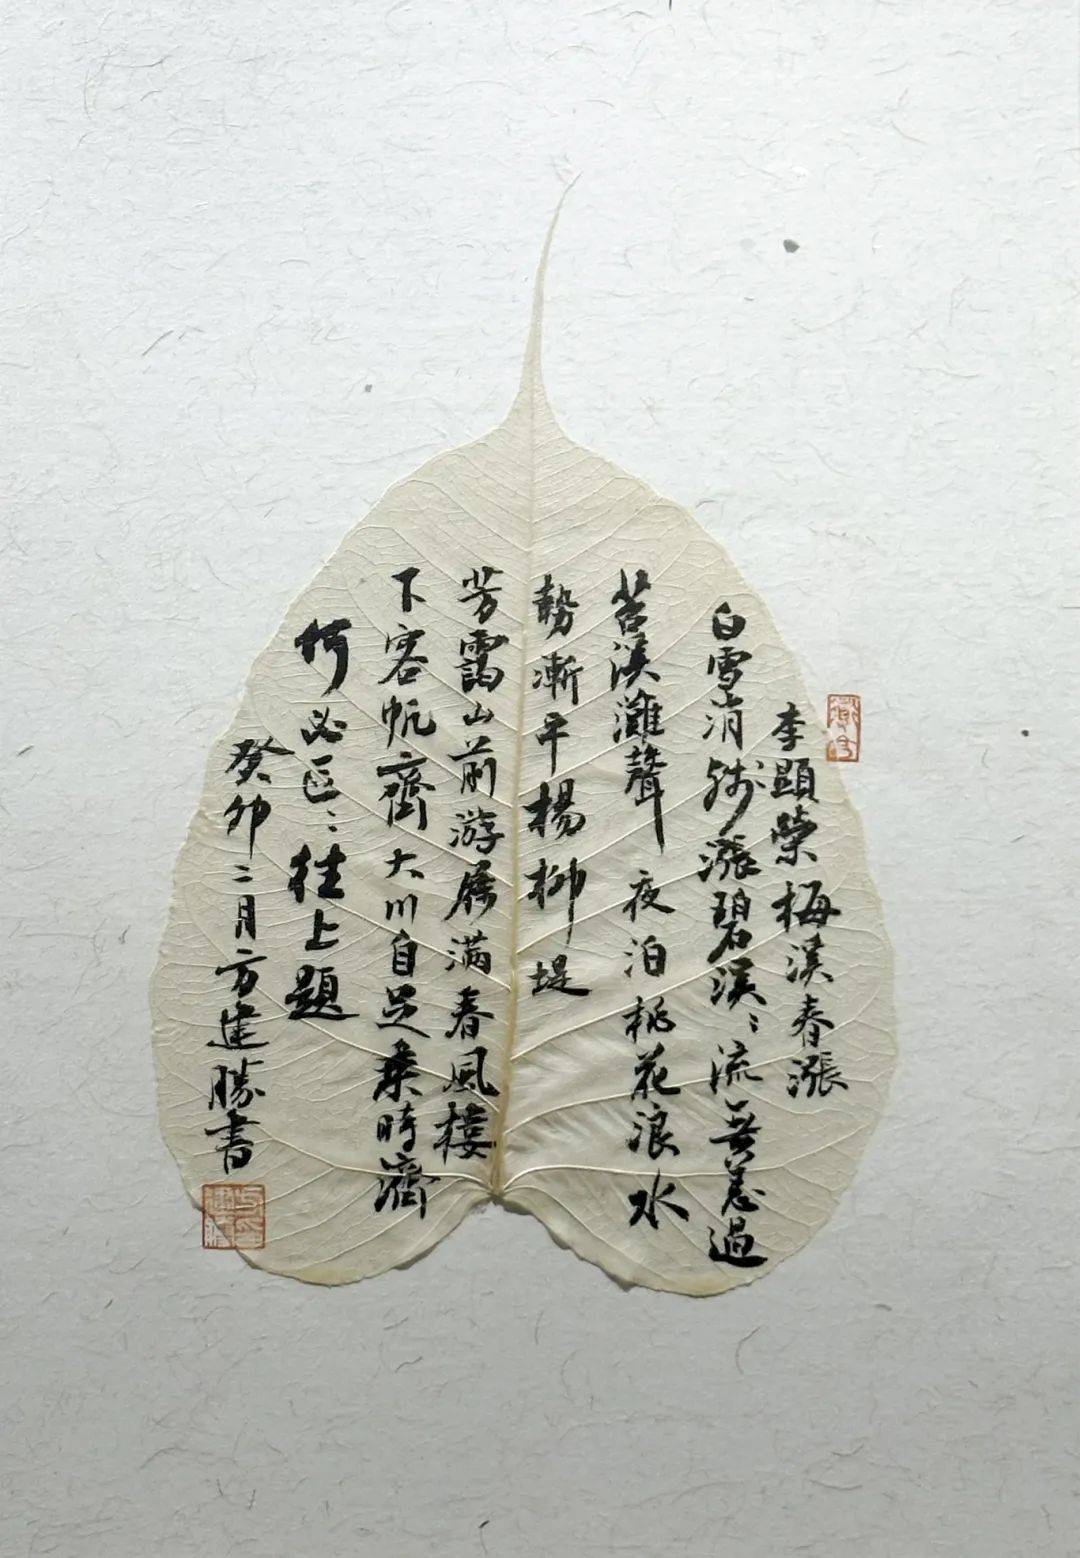 李顯榮梅溪春漲
白雪消殘漲碧溪〻流無恙過
苕溪灘聲夜泊桃花浪水
勢漸平楊柳堤
芳靄山前游屐滿春風樓
下客帆齊大川自足乘時濟
何必區〻柱上題
癸卯二月方建勝書